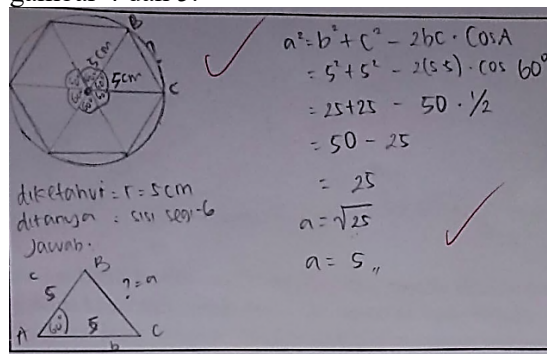 B
5cm
5cm
C
60°
diketahui = r = 5cm
ditanya = sisi segi-6
Jawab.
B
c
5
? = a
A
60°
5
C
b
a² = b² + c² - 2bc · CosA
= 5² + 5² - 2(5.5) · cos 60°
= 25+25 - 50 · 1/2
= 50 - 25
= 25
a = √25
a = 5 „